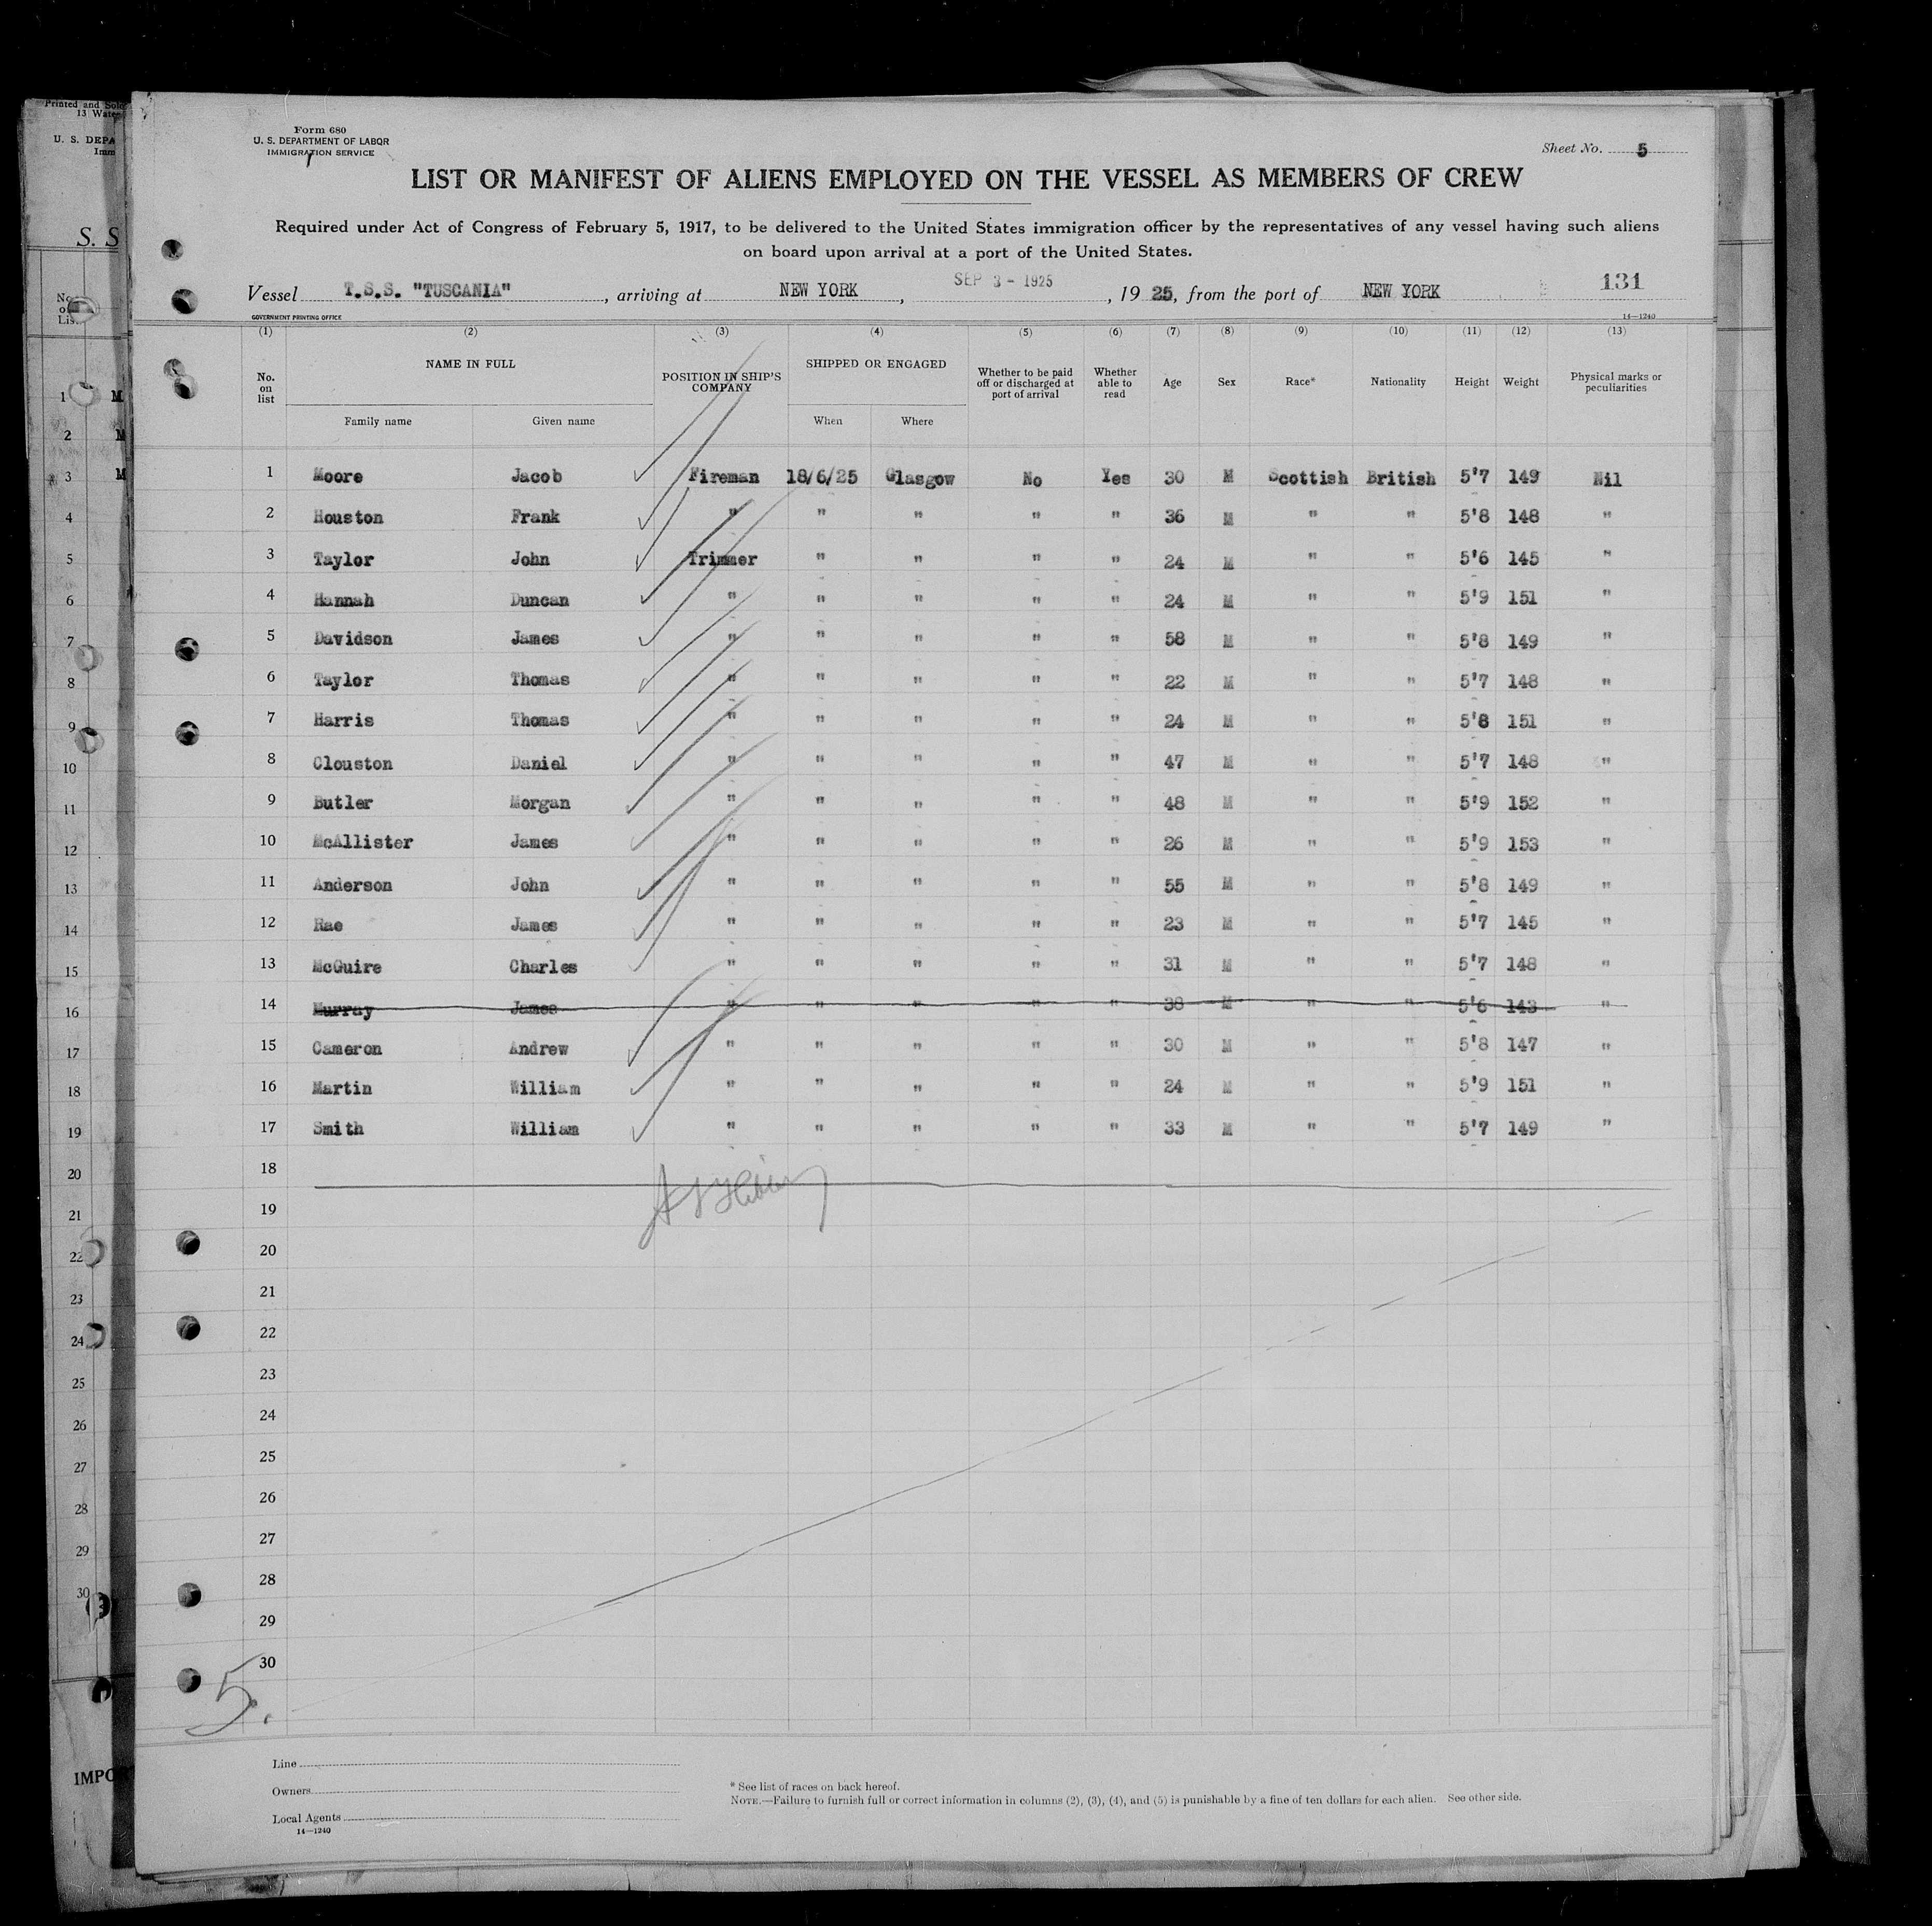 Printed and Sold
13 Water
U. S. DEPA
Imm
S. S
Form 680
U. S. DEPARTMENT OF LABOR
IMMIGRATION SERVICE
Sheet No. 5
LIST OR MANIFEST OF ALIENS EMPLOYED ON THE VESSEL AS MEMBERS OF CREW
Required under Act of Congress of February 5, 1917, to be delivered to the United States immigration officer by the representatives of any vessel having such aliens
on board upon arrival at a port of the United States.
Vessel T.S.S. "TUSCANIA", arriving at NEW YORK, SEP 3 - 1925, 19 25, from the port of NEW YORK 131
GOVERNMENT PRINTING OFFICE 14—1240
(1) (2) (3) (4) (5) (6) (7) (8) (9) (10) (11) (12) (13)
No. on list NAME IN FULL POSITION IN SHIP'S COMPANY SHIPPED OR ENGAGED Whether to be paid off or discharged at port of arrival Whether able to read Age Sex Race* Nationality Height Weight Physical marks or peculiarities
Family name Given name When Where
1 Moore Jacob Fireman 18/6/25 Glasgow No Yes 30 M Scottish British 5'7 149 Nil
2 Houston Frank " " " " " 36 M " " 5'8 148 "
3 Taylor John Trimmer " " " " 24 M " " 5'6 145 "
4 Hannah Duncan " " " " " 24 M " " 5'9 151 "
5 Davidson James " " " " " 58 M " " 5'8 149 "
6 Taylor Thomas " " " " " 22 M " " 5'7 148 "
7 Harris Thomas " " " " " 24 M " " 5'8 151 "
8 Clouston Daniel " " " " " 47 M " " 5'7 148 "
9 Butler Morgan " " " " " 48 M " " 5'9 152 "
10 McAllister James " " " " " 26 M " " 5'9 153 "
11 Anderson John " " " " " 55 M " " 5'8 149 "
12 Rae James " " " " " 23 M " " 5'7 145 "
13 McGuire Charles " " " " " 31 M " " 5'7 148 "
14 Murray James " " " " " 38 M " " 5'6 143 "
15 Cameron Andrew " " " " " 30 M " " 5'8 147 "
16 Martin William " " " " " 24 M " " 5'9 151 "
17 Smith William " " " " " 33 M " " 5'7 149 "
18
19
20
21
22
23
24
25
26
27
28
29
30
5.
Line
Owners
Local Agents
14—1240
* See list of races on back hereof.
NOTE.—Failure to furnish full or correct information in columns (2), (3), (4), and (5) is punishable by a fine of ten dollars for each alien. See other side.
No
of
Lis
1 M
2 M
3 M
4
5
6
7
8
9
10
11
12
13
14
15
16
17
18
19
20
21
22
23
24
25
26
27
28
29
30
IMPOR